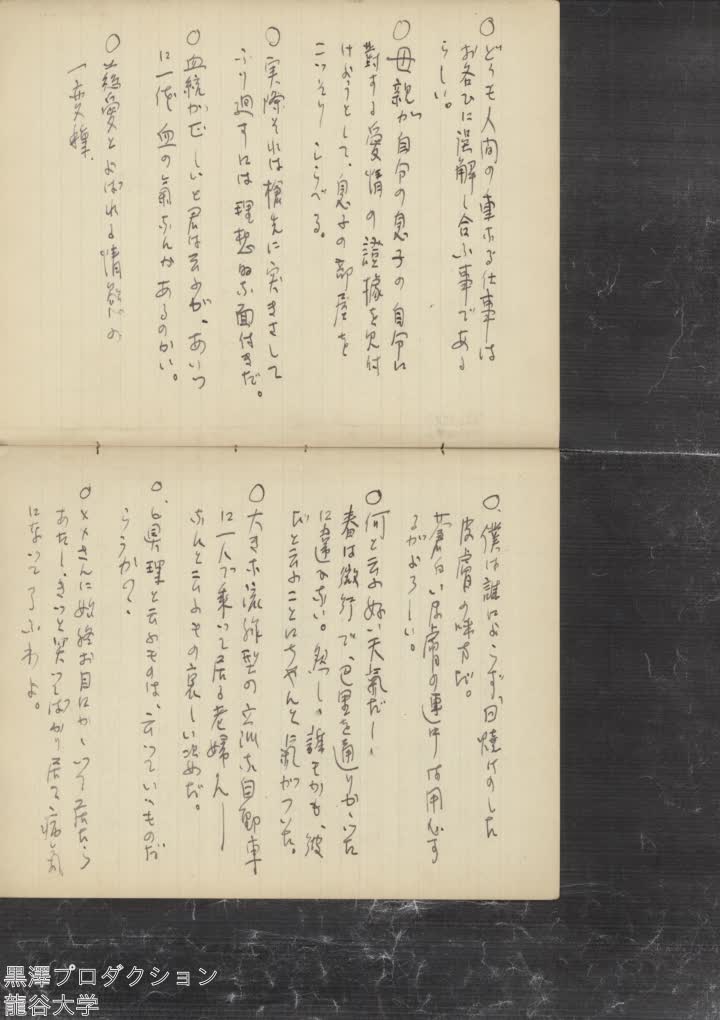 ○どうも人間の重ホな仕事は
お各ひに誤解し合ふ事である
らしい。
○母親が自分の息子の自分に
對する愛情の證據を見付
けようとして、息子の部屋を
こつそりしらべる。
○実際それは槍先に突きさして
ふり廻すには理想的な面付きだ。
○血統が正しいと君は云ふが、あいつ
に一体血の氣なんかあるのかい。
○慈愛とよばれる情慾の
一変種、
○、僕は誰によらず、日焼けのした
皮膚の味方だ。
蒼白い皮膚の連中は用心す
るがよろしい。
○何と云ふ好い天氣だ!
春は微行で、巴里を通りかゝつた
に違ひない。然しの誰もかも、彼
だと云ふことにちやんと氣がついた。
○大きな流線型の立派な自動車
に一人で乗つて居る老婦人―
なんと云ふもの哀しい眺めだ。
○、眞理と云ふものは、云つていゝものだ
らうか?、
○××さんに始終お目にかゝつて居たら
あたし、きつと笑つてばかり居て病氣
になつて了ふわよ。
黒澤プロダクション
龍谷大学